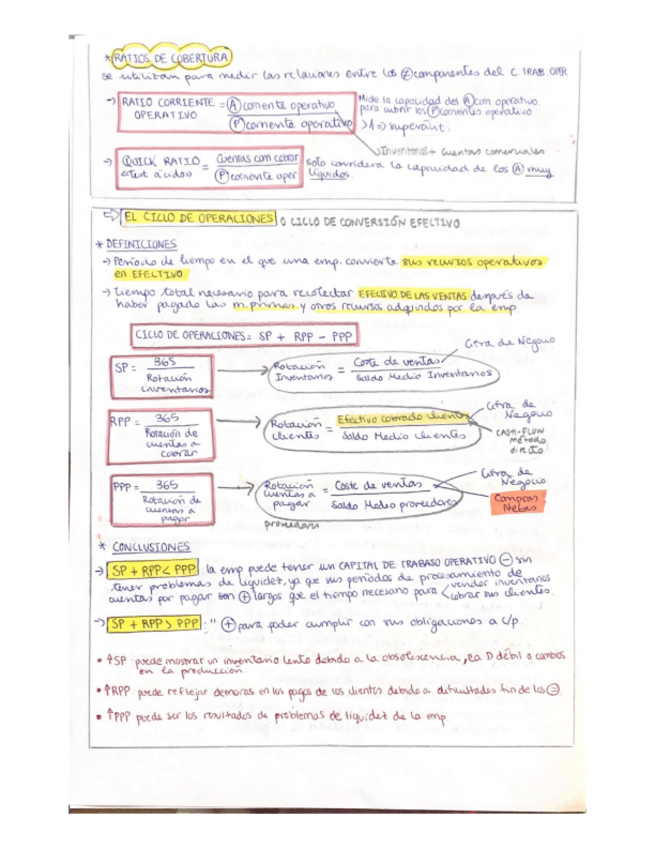 * RATIOS DE COBERTURA
se utilizan para medir las relaciones entre los ② componentes del C. TRAB. OPR
→ RATIO CORRIENTE OPERATIVO = Ⓐ corriente operativo / Ⓟ corriente operativo
Mide la capacidad del Ⓐ corr operativo
para cubrir los Ⓟ corrientes operativo
>1 => superávit.
Inventarios + cuentas comerciales
→ QUICK RATIO = Cuentas com cobrar / Ⓟ corriente oper
(test ácido)
solo considera la capacidad de los Ⓐ muy
líquidos.
⇨ EL CICLO DE OPERACIONES O CICLO DE CONVERSIÓN EFECTIVO
* DEFINICIONES
→ Periodo de tiempo en el que una emp. convierte sus recursos operativos
en EFECTIVO
→ tiempo total necesario para recolectar EFECTIVO DE LAS VENTAS después de
haber pagado las m. primas y otros recursos adquiridos por la emp
CICLO DE OPERACIONES = SP + RPP - PPP
SP = 365 / Rotación inventarios
Rotación Inventarios = Coste de ventas / Saldo Medio Inventarios
Cifra de Negocio
RPP = 365 / Rotación de cuentas a cobrar
Rotación clientes = Efectivo cobrado clientes / Saldo Medio clientes
Cifra de Negocio
CASH-FLOW
método
directo
PPP = 365 / Rotación de cuentas a pagar
Rotación cuentas a pagar = Coste de ventas / Saldo Medio proveedores
Cifra de Negocio
Compras Netas
proveedores
* CONCLUSIONES
→ SP + RPP < PPP : la emp puede tener un CAPITAL DE TRABAJO OPERATIVO ⊖ sin
tener problemas de liquidez, ya que sus periodos de procesamiento de
cuentas por pagar son ⊕ largos que el tiempo necesario para < vender inventarios
cobrar sus clientes.
→ SP + RPP > PPP : " ⊕ para poder cumplir con sus obligaciones a c/p.
• ↑SP puede mostrar un inventario lento debido a la obsolescencia, la D débil o cambios
en la producción.
• ↑RPP puede reflejar demoras en los pagos de los clientes debido a dificultades fin de los
• ↑PPP puede ser los resultados de problemas de liquidez de la emp